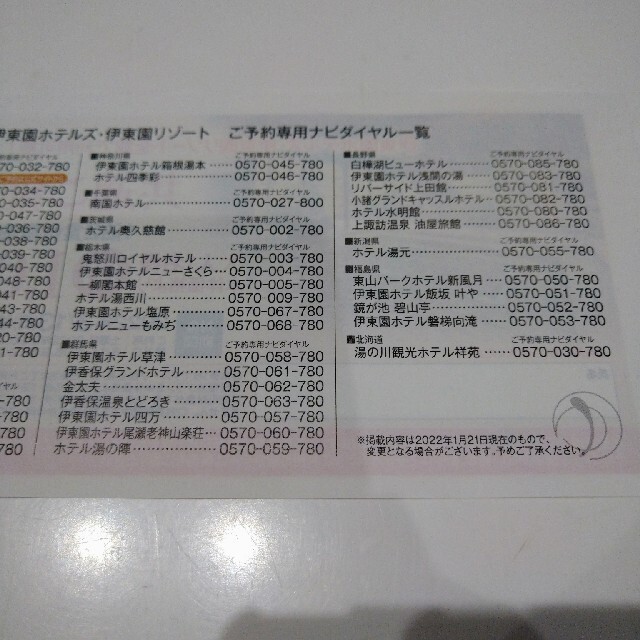 伊東園ホテルズ・伊東園リゾート ご予約専用ナビダイヤル一覧
ご予約専用ナビダイヤル
0-032-780
0-034-780
0-035-780
-047-780
-036-780
-038-780
039-780
040-780
048-780
041-780
43-780
44-780
37-780
■神奈川県 ご予約専用ナビダイヤル
伊東園ホテル箱根湯本…0570-045-780
ホテル四季彩…0570-046-780
■千葉県 ご予約専用ナビダイヤル
南国ホテル…0570-027-800
■茨城県 ご予約専用ナビダイヤル
ホテル奥久慈館…0570-002-780
■栃木県 ご予約専用ナビダイヤル
鬼怒川ロイヤルホテル…0570-003-780
伊東園ホテルニューさくら…0570-004-780
一柳閣本館…0570-005-780
ホテル湯西川…0570-009-780
伊東園ホテル塩原…0570-067-780
ホテルニューもみぢ…0570-068-780
■群馬県 ご予約専用ナビダイヤル
伊東園ホテル草津…0570-058-780
伊香保グランドホテル…0570-061-780
金太夫…0570-062-780
伊香保温泉とどろき…0570-063-780
伊東園ホテル四万…0570-057-780
伊東園ホテル尾瀬老神山楽荘…0570-060-780
ホテル湯の陣…0570-059-780
■長野県 ご予約専用ナビダイヤル
白樺湖ビューホテル…0570-085-780
伊東園ホテル浅間の湯…0570-083-780
リバーサイド上田館…0570-081-780
小諸グランドキャッスルホテル…0570-082-780
ホテル水明館…0570-080-780
上諏訪温泉 油屋旅館…0570-086-780
■新潟県 ご予約専用ナビダイヤル
ホテル湯元…0570-055-780
■福島県 ご予約専用ナビダイヤル
東山パークホテル新風月…0570-050-780
伊東園ホテル飯坂 叶や…0570-051-780
鏡が池 碧山亭…0570-052-780
伊東園ホテル磐梯向滝…0570-053-780
■北海道 ご予約専用ナビダイヤル
湯の川観光ホテル祥苑…0570-030-780
※掲載内容は2022年1月21日現在のもので、
変更となる場合がございます。予めご了承ください。